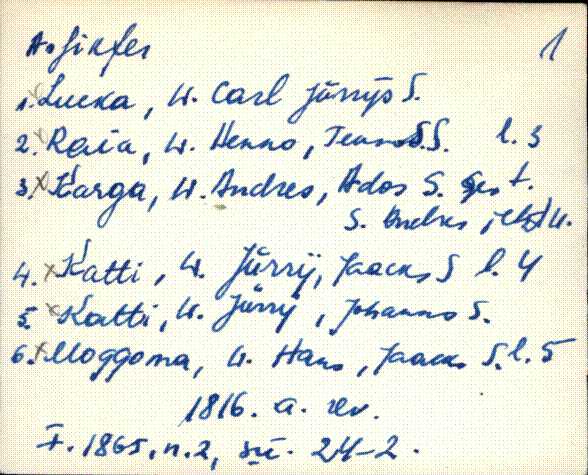 A. Sikfer 1
1. Lucka, W. Carl Jürrÿs S.
2. Raia, W. Henno, Tenno S.S. l. 3
3. Karga, W. Andres, Ados S. t.
S. Andres,
4. Katti, W. Jürrÿ, Jaacks S l. 4
5. Katti, W. Jürrÿ, Johanns S.
6. Moggoma, W. Hans, Jaacks S. l. 5
1816. a. rev.
F. 1865, n. 2, sü. 24-2.